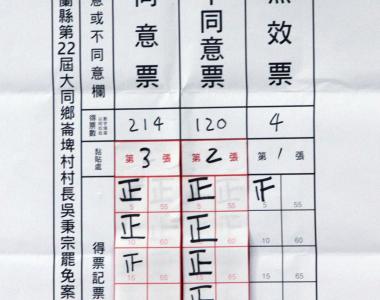 蘭縣第22屆大同鄉崙埤村村長吳秉宗罷免案
意或不同意欄
同意票
不同意票
無效票
得票數
214
120
4
黏貼處
第3張
第2張
第1張
得票記票
正
正
正
正
正
5
55
5
55
5
55
10
60
10
60
10
60
15
65
15
65
15
65